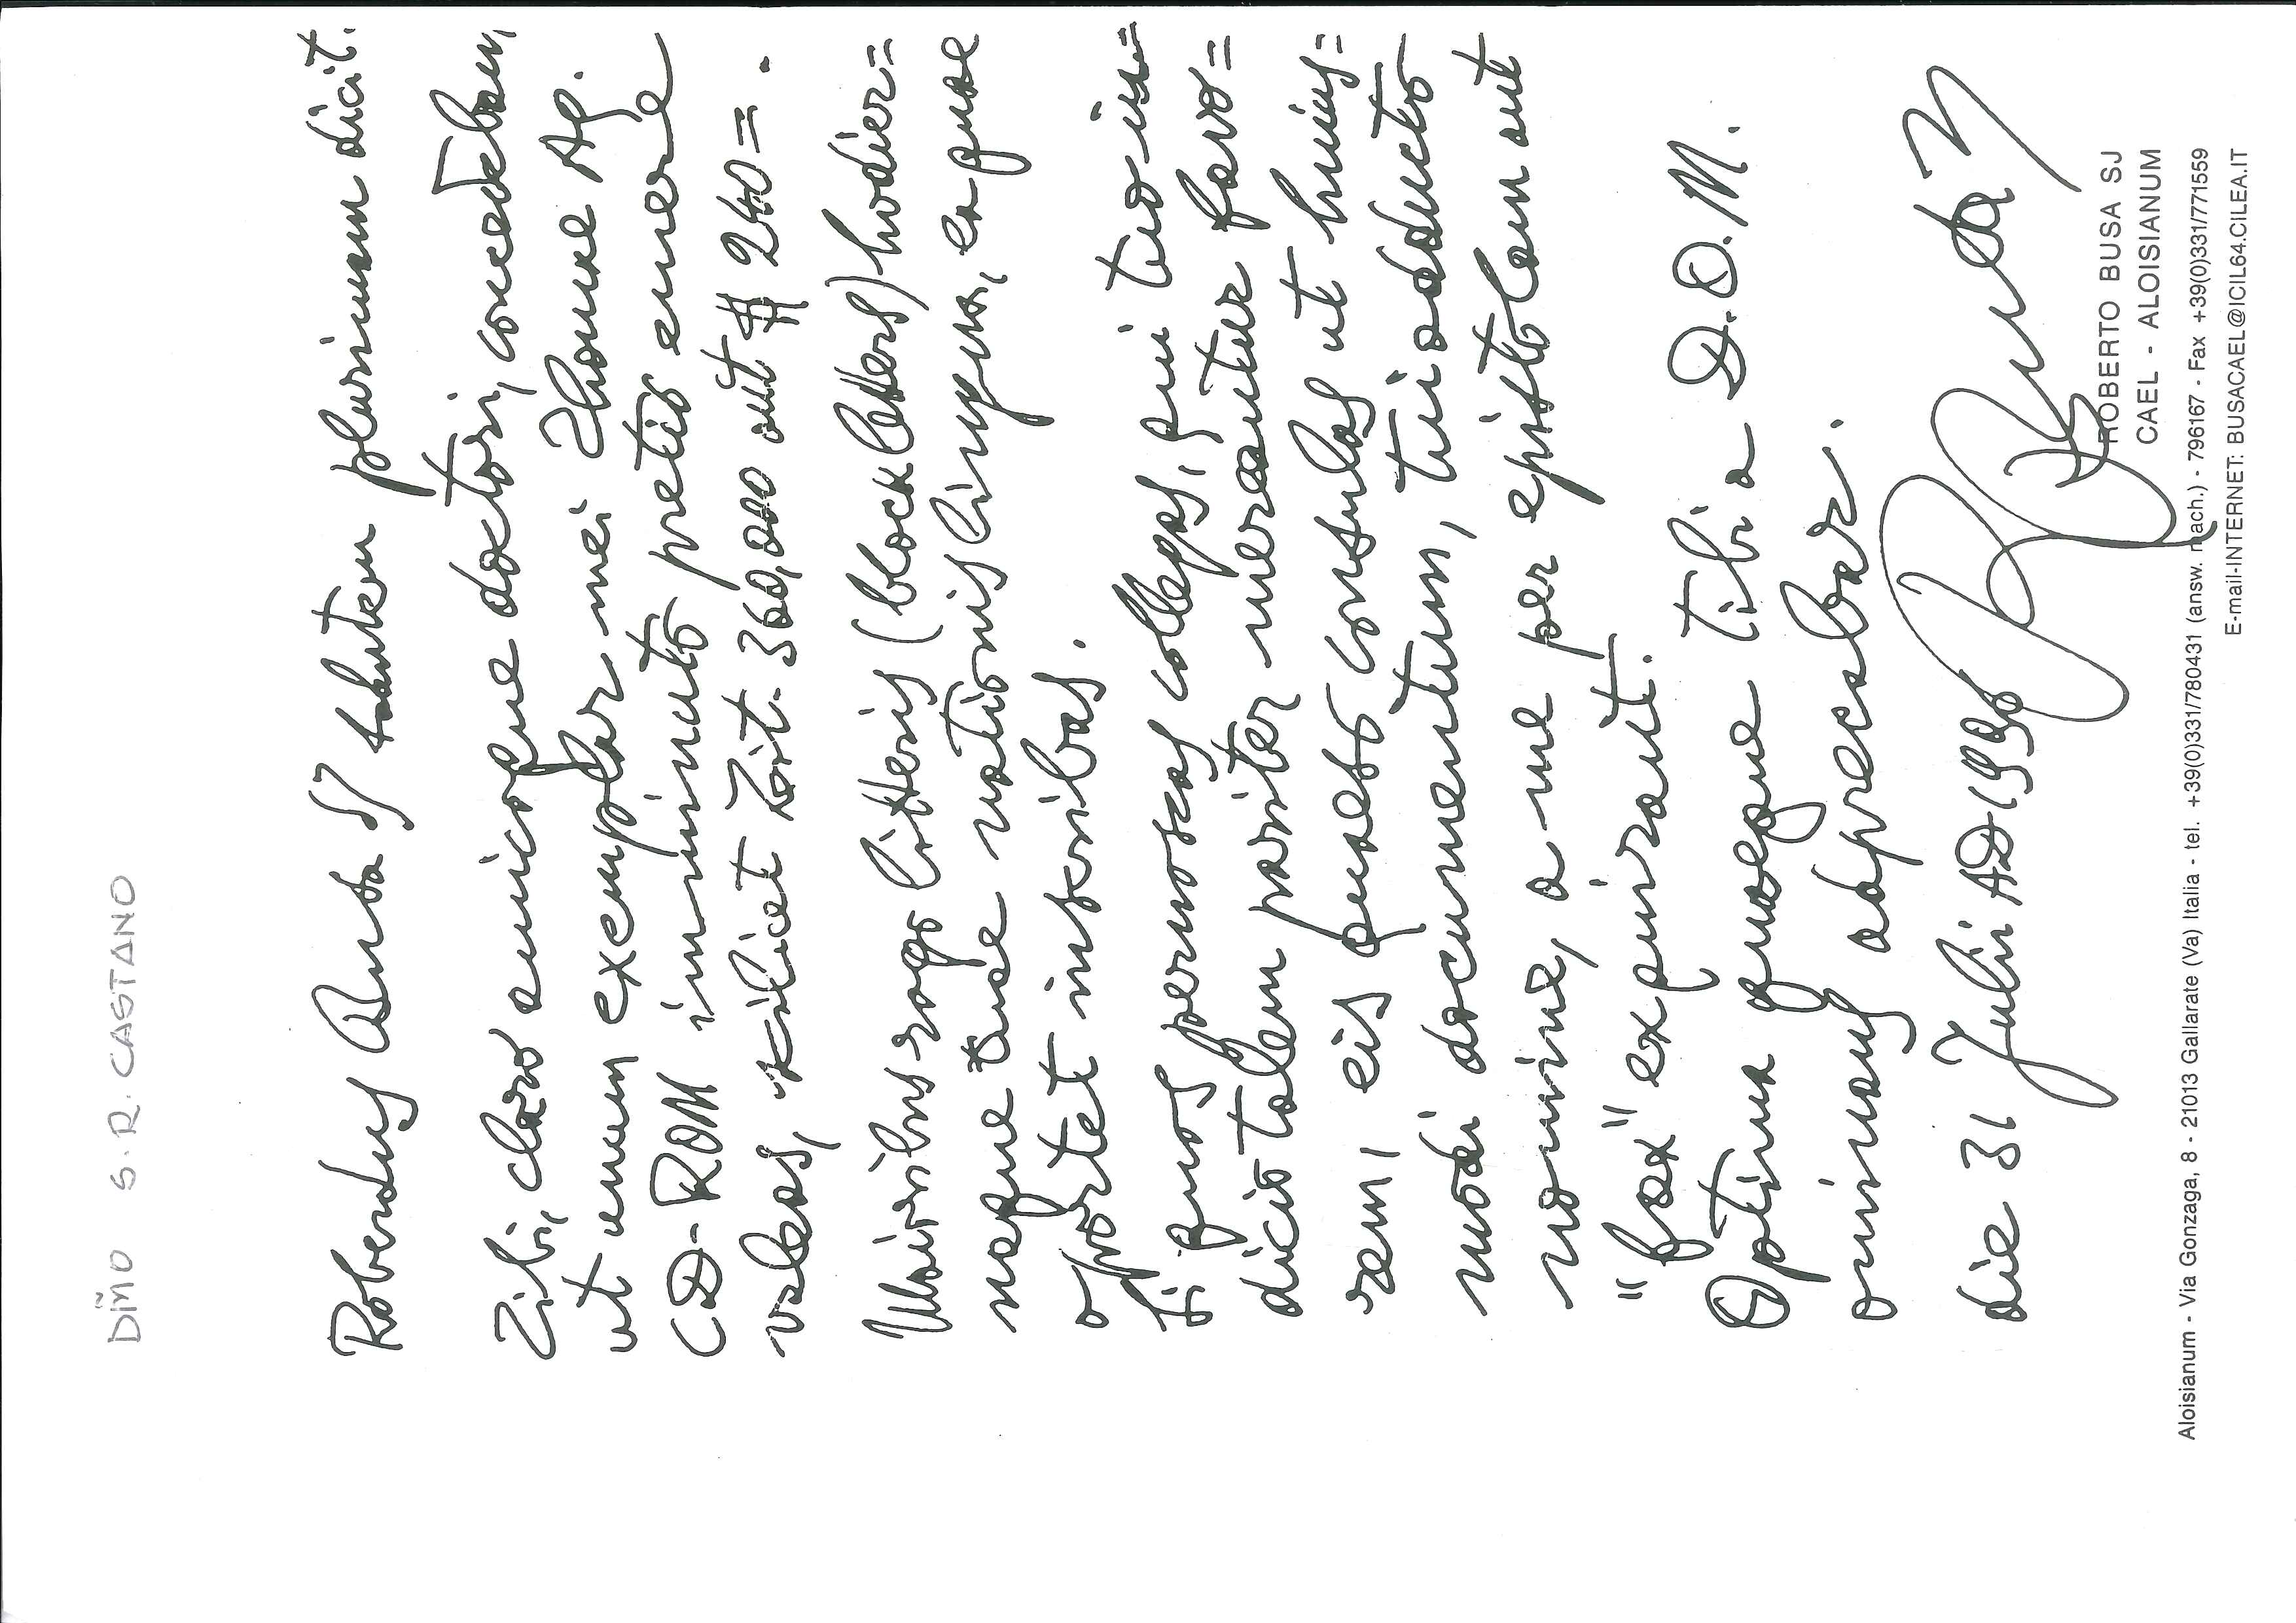 Dm̃o S. R. CASTANO
Robertus Busa SJ salutem plurimam dicit.
Tibi, claro amicoque doctori, concedebam,
ut unum exemplar mei Thomae Aq.
CD-ROM imminuto pretio emere
valeas, scilicet Lit. 360,000 aut $ 240=.
Maioribus rogo litteris (block letters) hodier=
naque tuae nationis lingua, ea quae
oportet inscribas.
Si quos pernoscas collegas, qui tuo iu=
dicio talem pariter mereantur favo=
rem, eis quaeso consulas ut huius=
modi documentum, tui adducto
nomine, a me per epistolam aut
"fax" exquirant.
Optima quaeque tibi a D.O.M.
omimans adprecabar.
die 31 Julii AD 1996 R Busa SJ
ROBERTO BUSA SJ
CAEL - ALOISIANUM
Aloisianum - Via Gonzaga, 8 - 21013 Gallarate (Va) Italia - tel. +39(0)331/780431 (answ. mach.) - 796167 - Fax +39(0)331/771559
E-mail-INTERNET: BUSACAEL@ICIL64.CILEA.IT